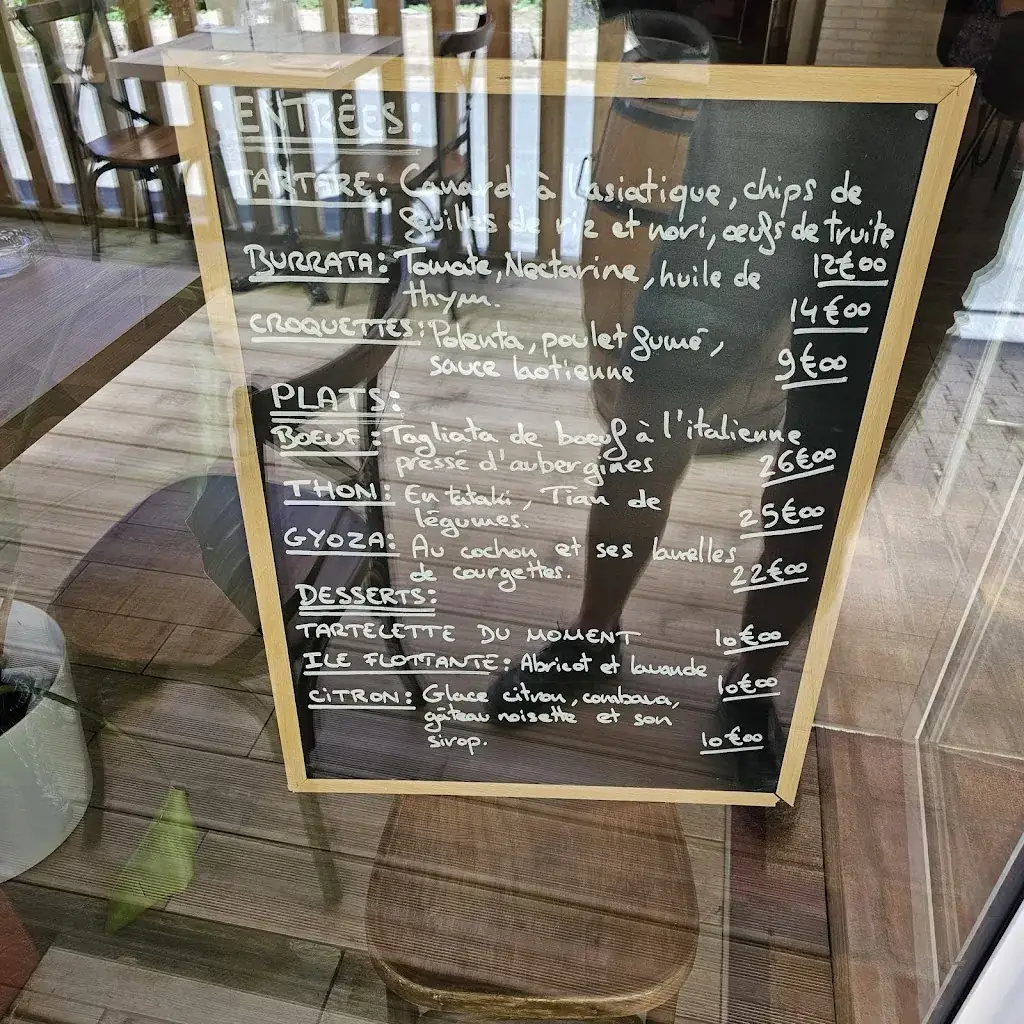 ENTRÉES:
TARTARE: Canard à l'asiatique, chips de
feuilles de riz et nori, œufs de truite
12€00
BURRATA: Tomate, Nectarine, huile de
thym.
14€00
CROQUETTES: Polenta, poulet fumé,
sauce laotienne
9€00
PLATS:
BOEUF: Tagliata de boeuf à l'italienne
pressé d'aubergines
26€00
THON: En tataki, Tian de
légumes.
25€00
GYOZA: Au cochon et ses lamelles
de courgettes.
22€00
DESSERTS:
TARTELETTE DU MOMENT 10€00
ILE FLOTTANTE: Abricot et lavande
10€00
CITRON: Glace citron, combava,
gâteau noisette et son
sirop.
10€00